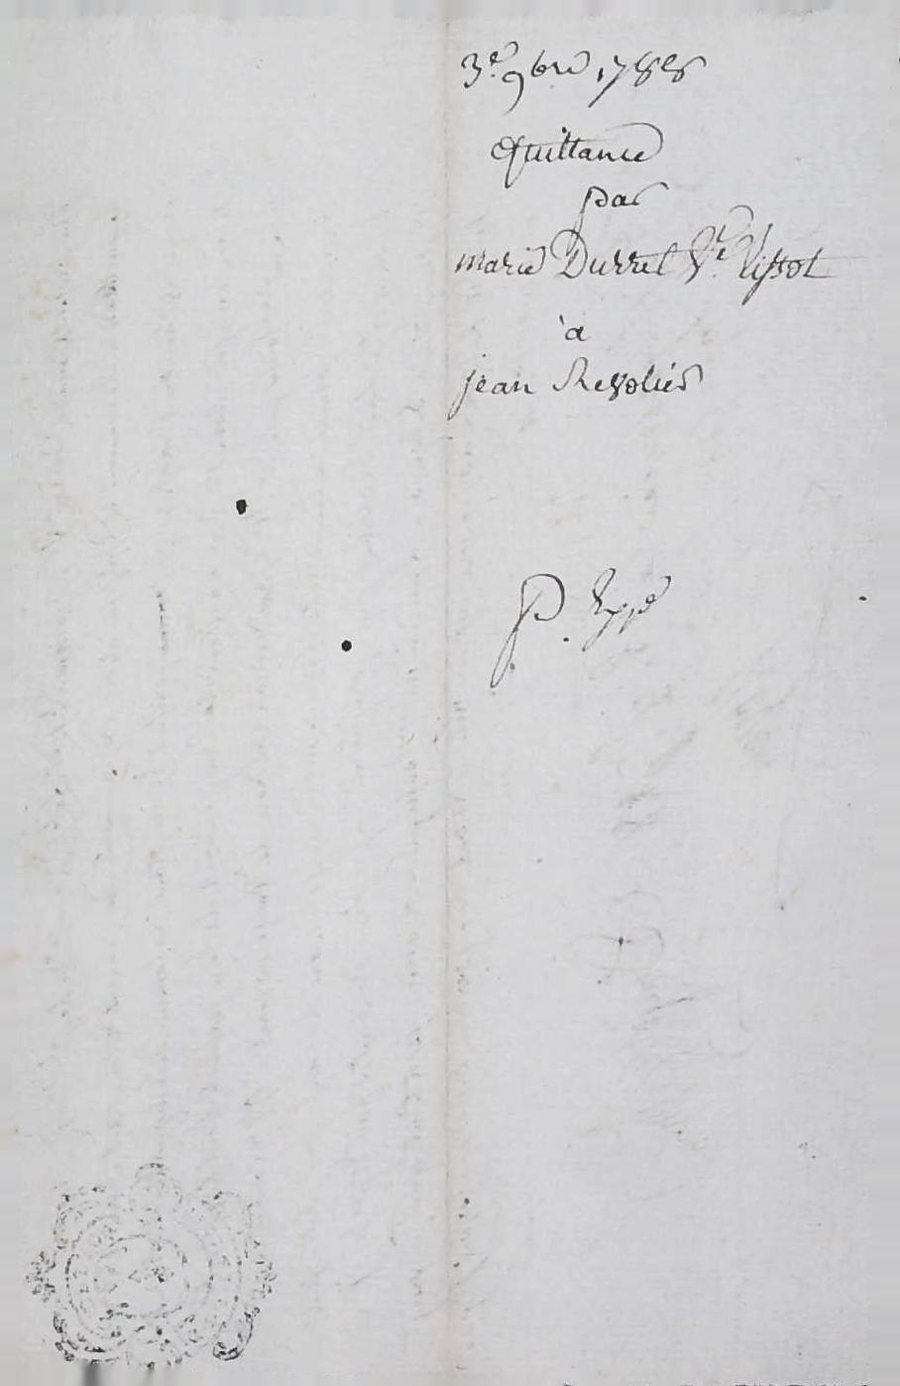 3e. 9bre 1788
Quittance
par
marie Durret Ve. Vissot
à
jean Revolier
P.